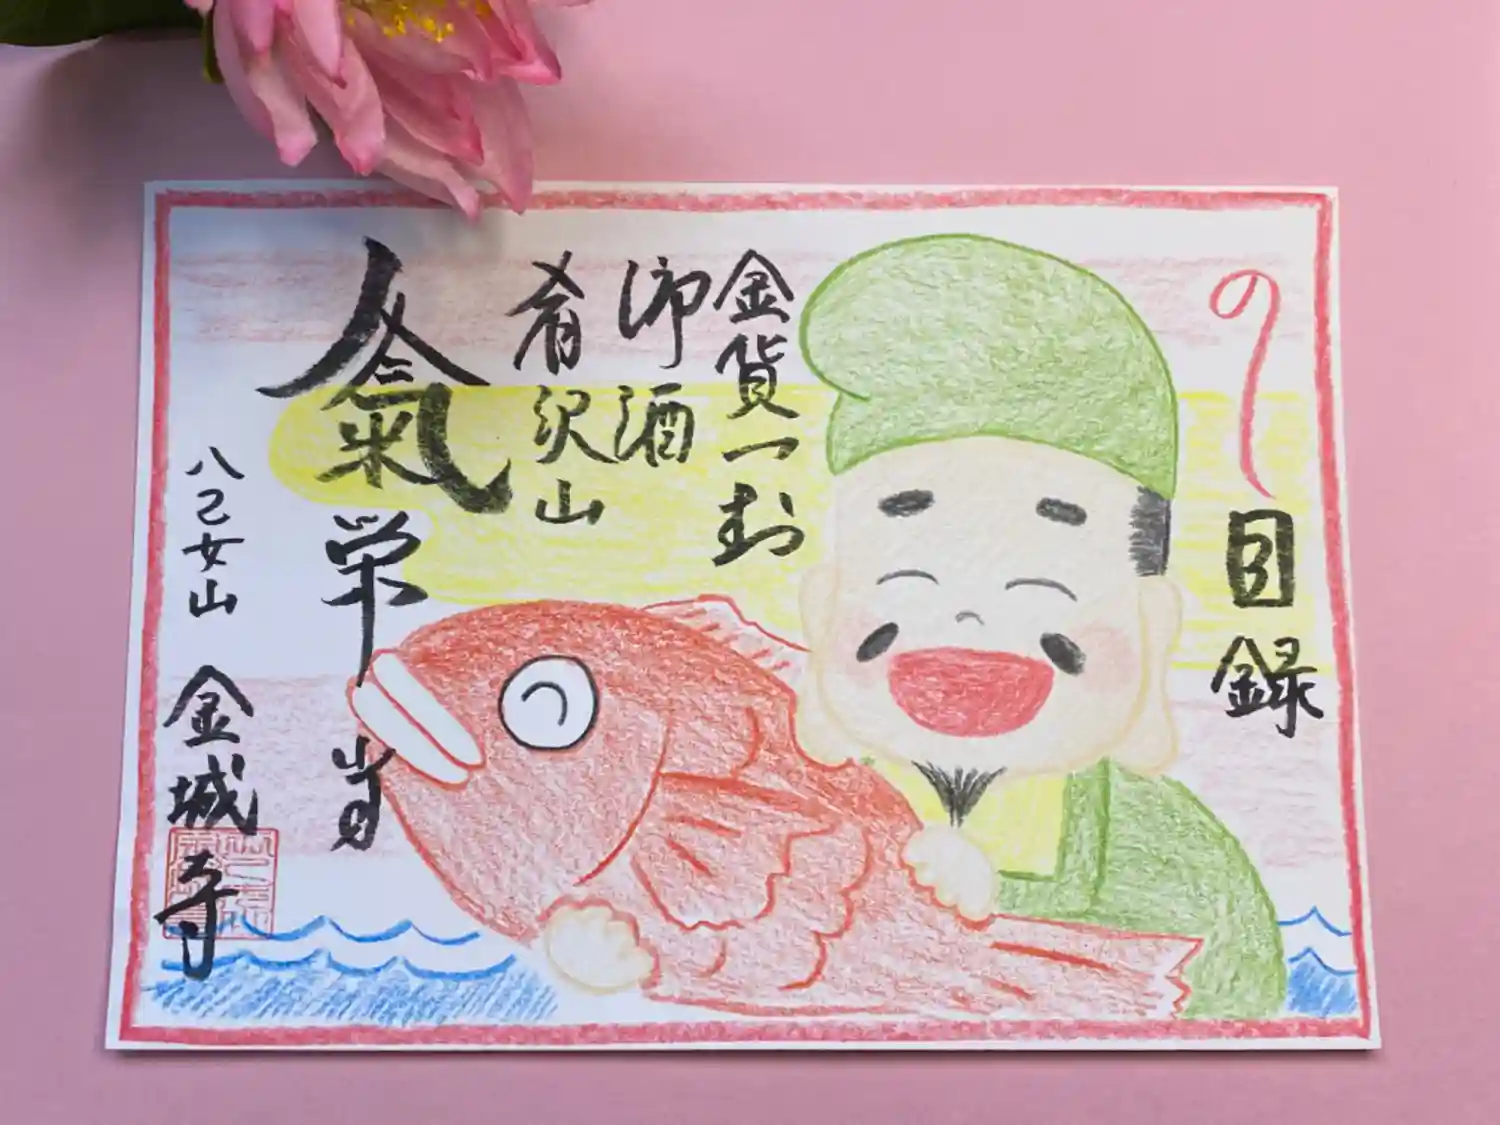 のし
目録
金貨一封
御酒
肴沢山
人氣栄當
八己女山 金城寺